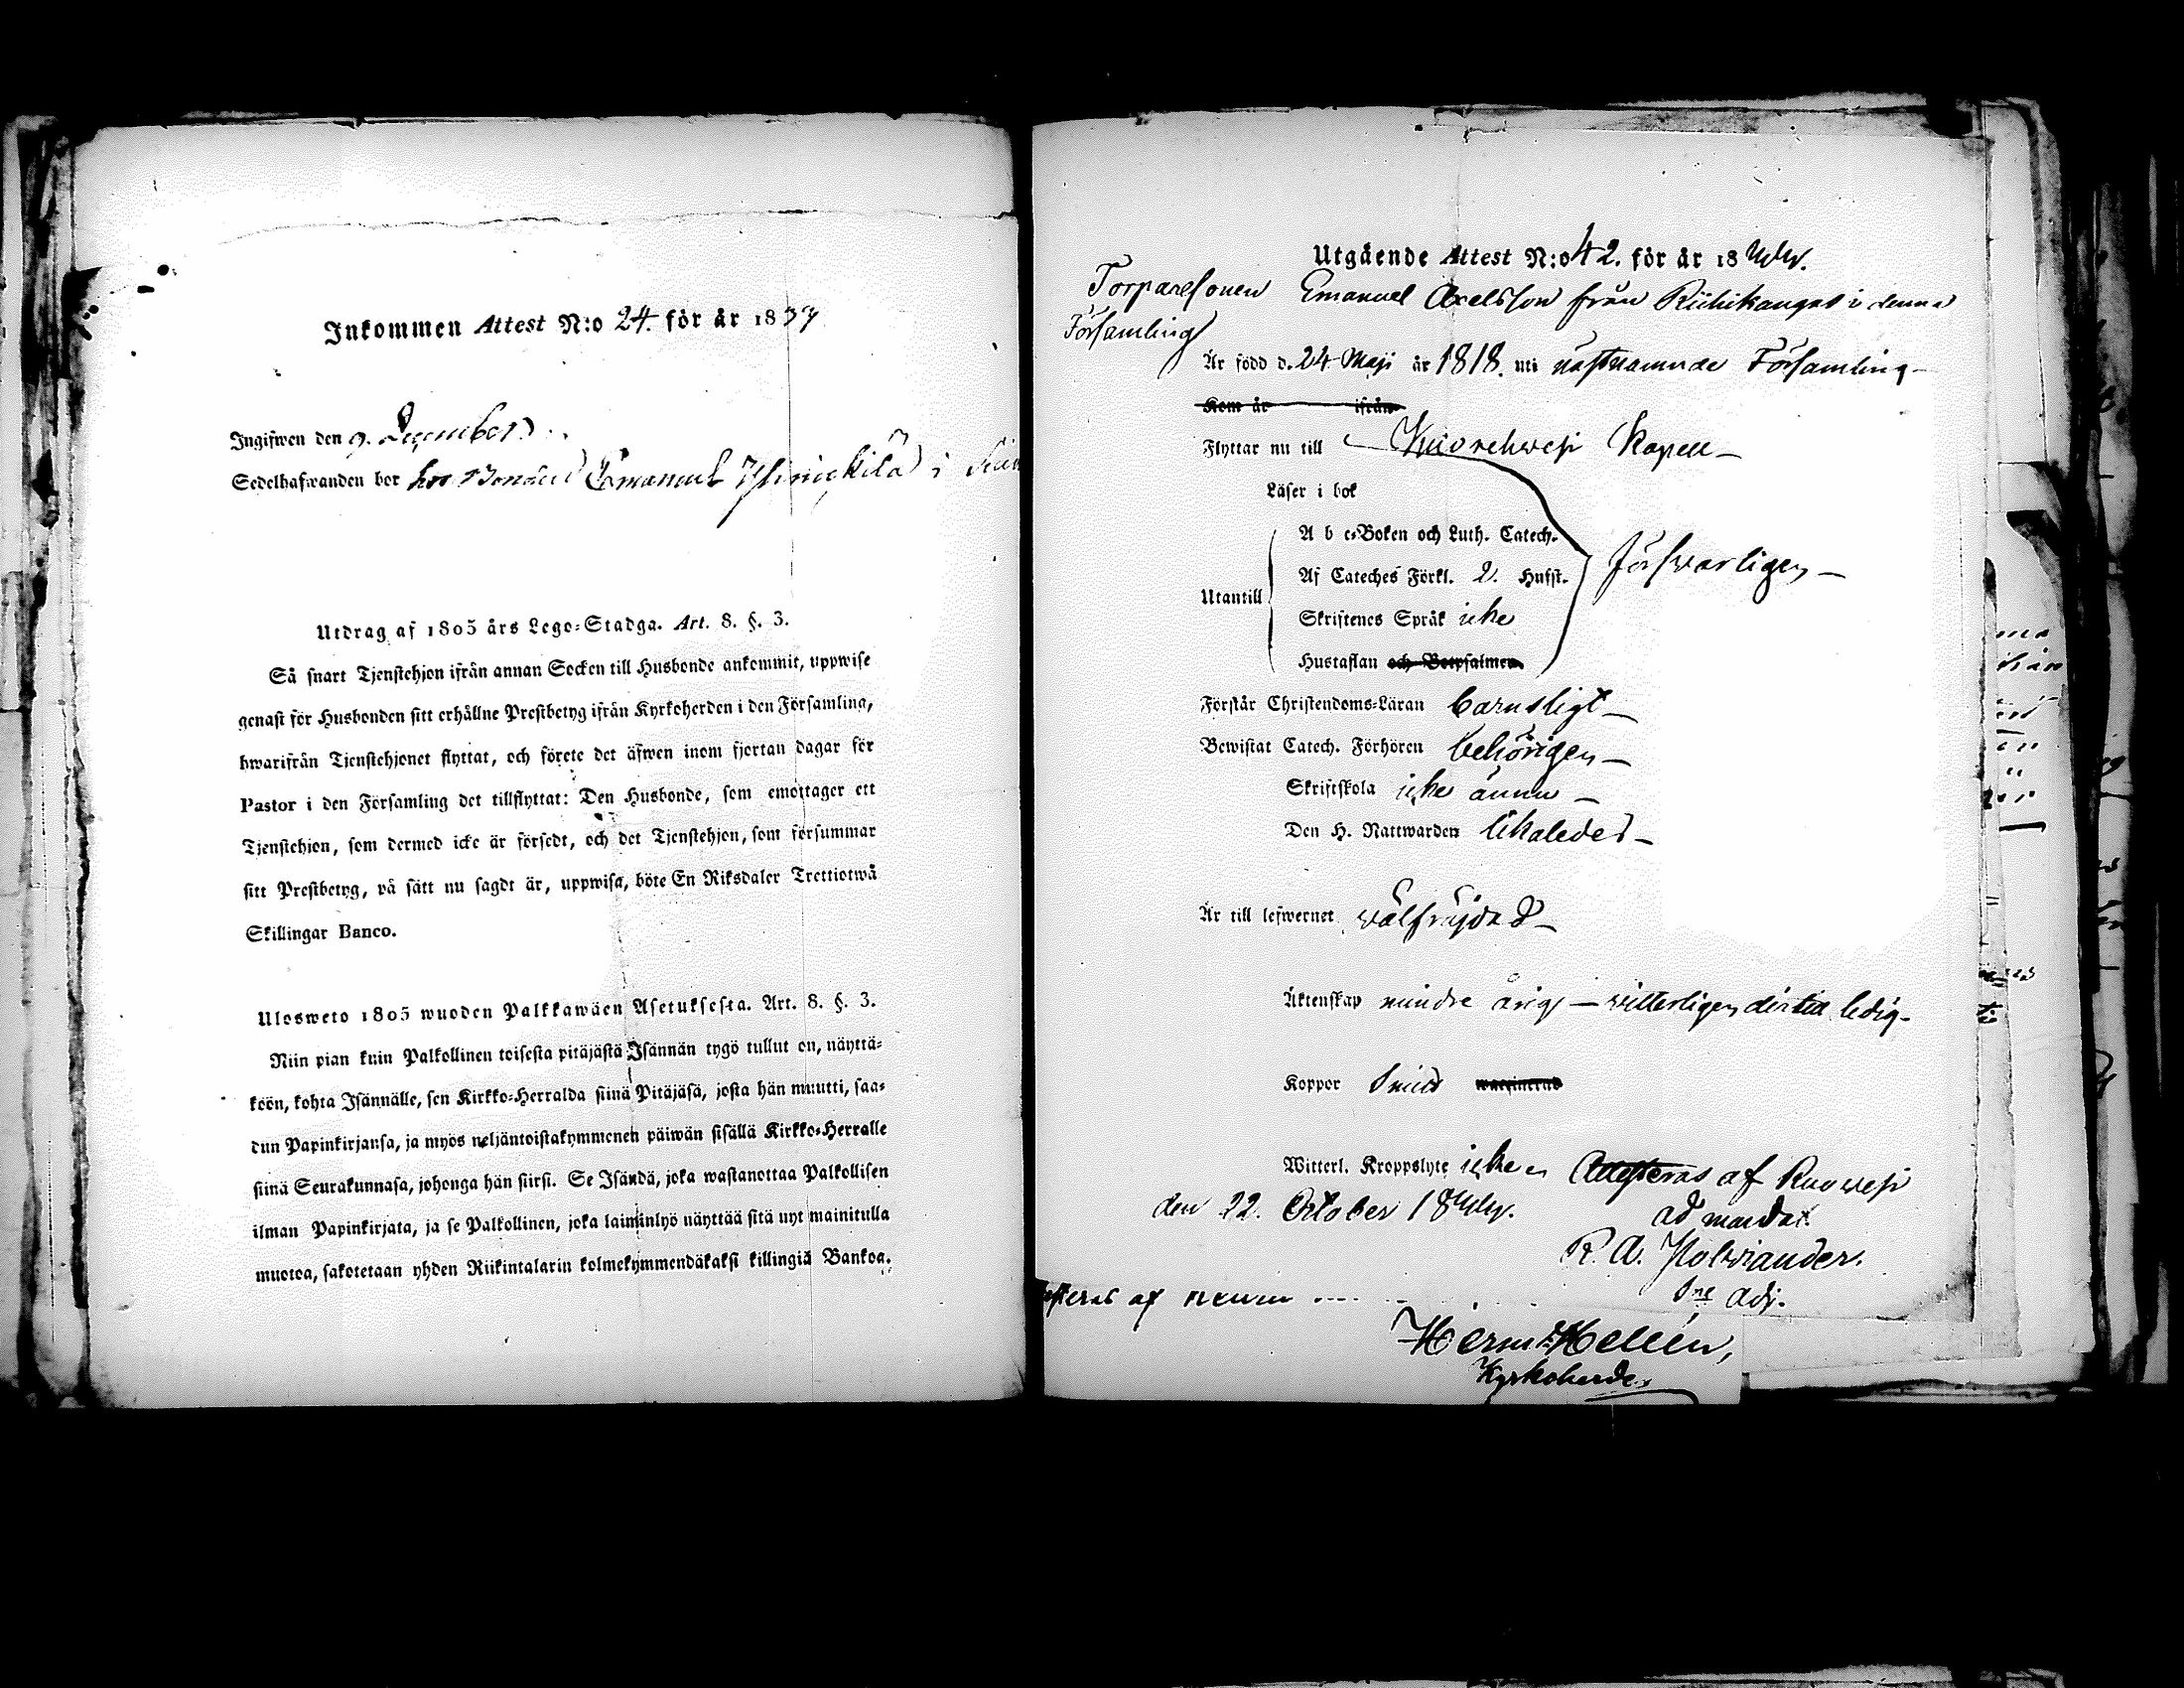 Inkommen Attest N:o 24. för år 1837
Ingifwen den 9. December
Sedelhafwanden bor hos Bonden Emanuel i
Utdrag af 1805 års Lego-Stadga. Art. 8. §. 3.
Så snart Tjenstehjon ifrån annan Socken till Husbonde ankommit, uppwise
genast för Husbonden sitt erhållne Prestbetyg ifrån Kyrkoherden i den Församling,
hwarifrån Tjenstehjonet flyttat, och förete det äfwen inom fjortan dagar för
Pastor i den Församling det tillflyttat: Den Husbonde, som emottager ett
Tjenstehjon, som dermed icke är försedt, och det Tjenstehjon, som försummar
sitt Prestbetyg, på sätt nu sagdt är, uppwisa, böte En Riksdaler Trettiotwå
Skillingar Banco.
Ulosweto 1805 wuoden Palkkawäen Asetuksesta. Art. 8. §. 3.
Niin pian kuin Palkollinen toisesta pitäjästä Isännän tygö tullut on, näyttä-
köön, kohta Isännälle, sen Kirkko-Herralda siinä Pitäjäsä, josta hän muutti, saa-
dun Papinkirjansa, ja myös neljäntoistakymmenen päiwän sisällä Kirkko-Herralle
siinä Seurakunnasa, johonga hän siirsi. Se Isändä, joka wastanottaa Palkollisen
ilman Papinkirjata, ja se Palkollinen, joka laiminlyö näyttää sitä nyt mainitulla
muotoa, sakotetaan yhden Riikintalarin kolmekymmendäkaksi killingiä Bankoa.
Utgående Attest N:o 42. för år 18
Torparesonen Emanuel Axelsson från Riihikangas i denna
Församling
Är född d. 24 Maji år 1818. uti nästnämnde Församling
Kom år ifrån
Flyttar nu till Kuorehwesi Kapell
Läser i bok
A b c-Boken och Luth. Catech.
Af Cateches Förkl. 2. Hufst. försvarligen
Utantill
Skriftenes Språk icke
Hustaflan och Botpsalmen
Förstår Christendoms-Läran barnsligt
Bewistat Catech. Förhören behörigen
Skriftskola icke ännu
Den H. Nattwarden likaledes
Är till lefwernet wälfrejdad
Äktenskap mindre årig – witterligen dertill ledig
Koppor waccinerad
Witterl. Kroppslyte icke Attesteras af Ruowesi
den 22. October 18
ad mandat.
R. A. Holviander.
Sne adj.
steras af
Herm. Hellén,
Kyrkoherde